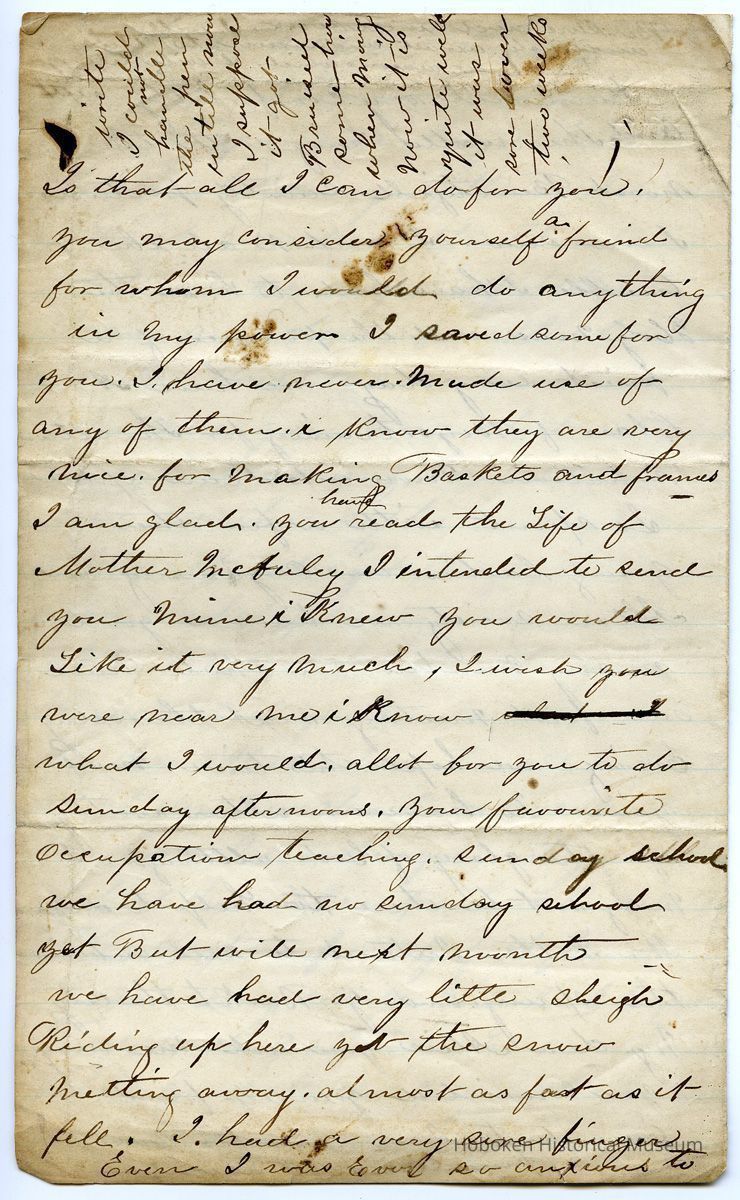 Is that all I can do for you!
you may consider yourself a friend
for whom I would do anything
in my power I saved some for
you. I have never. Made use of
any of them. i know they are very
nice. for making Baskets and frames
I am glad. you have read the Life of
Mother McAuley I intended to send
you mine i Knew you would
Like it very much, I wish you
were near me i Know
what I would. allot for you to do
sunday afternoons. your favourite
Occupation teaching. sunday school
we have had no sunday school
yet But will next moonth
we have had very little sleigh
Riding up here yet the snow
melting away. almost as fast as it
fell. I. had a very sore finger
Even I was Ever so anxious to
write
I could
not
handle
the pen
untill now
I suppose
it got
Bruised
some how
when
Now it is
quite well
it was
sore over
two weeks
Hoboken Historical Museum